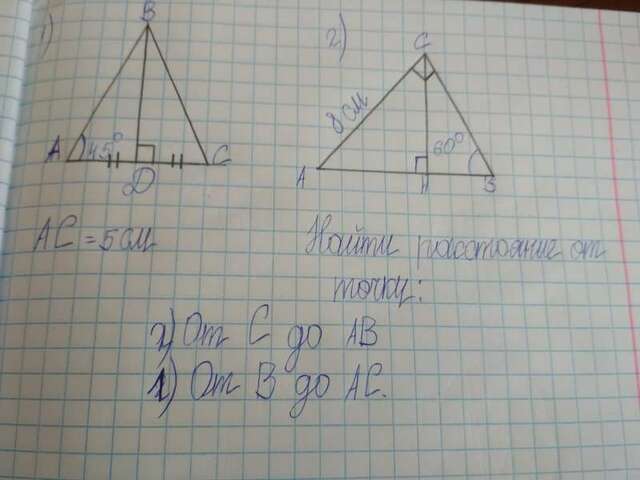 1)
B
A 45° D C
2)
C
8 см
A H 60° B
AC = 5 см
Найти расстояние от
точки:
2) От C до AB
1) От B до AC.